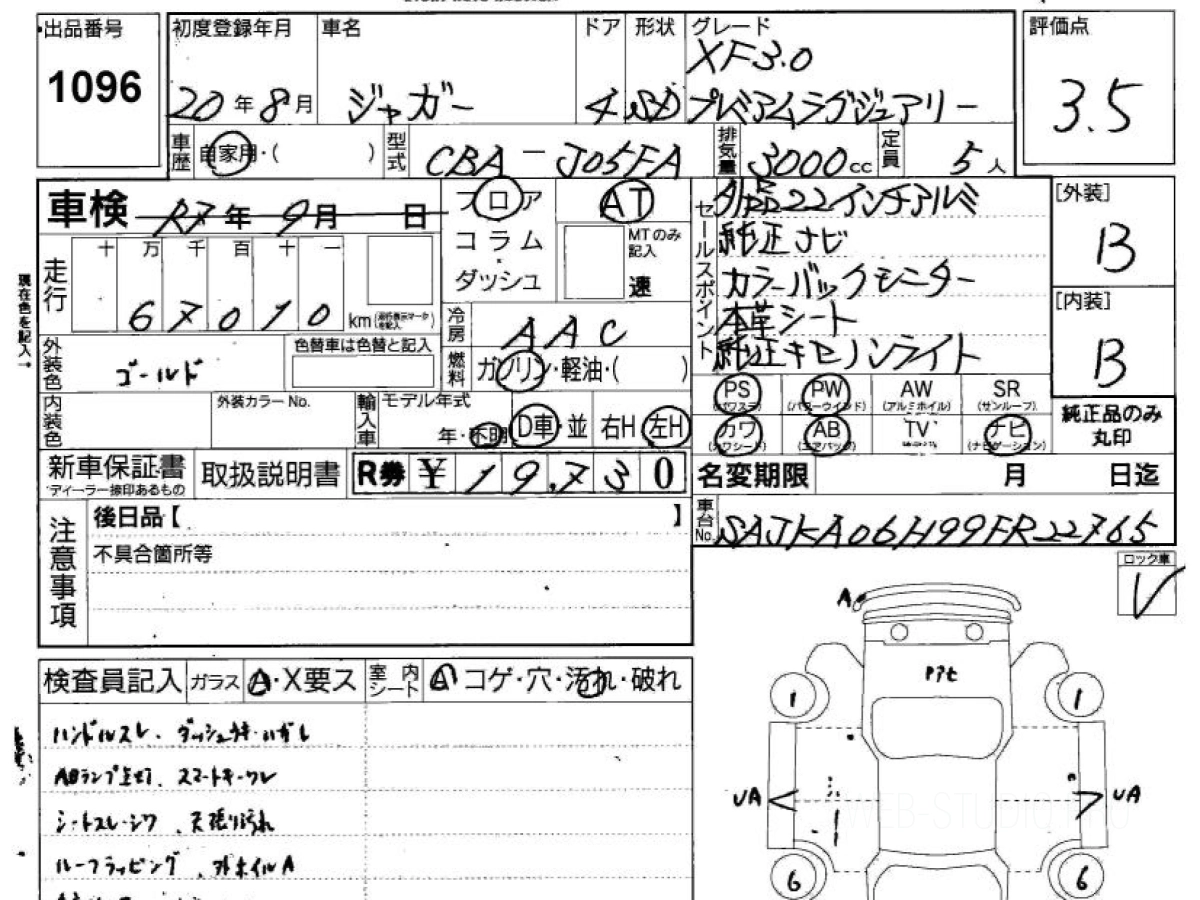 出品番号
1096
初度登録年月
20年8月
車名
ジャガー
ドア
4
形状
SD
グレード
XF3.0
プレミアムラグジュアリー
評価点
3.5
車歴
自家用・( )
型式
CBA-J05FA
排気量
3000cc
定員
5人
車検
R7年9月 日
フロア
コラム
ダッシュ
AT
MTのみ記入
速
セールスポイント
外品22インチアルミ
純正ナビ
カラーバックモニター
本革シート
純正キセノンライト
[外装]
B
[内装]
B
現在色を記入→
走行
十 万 千 百 十 一
67010
km
冷房
AAC
燃料
ガソリン・軽油・( )
外装色
ゴールド
色替車は色替と記入
内装色
外装カラーNo.
輸入車
モデル年式
年・不明
D車・並
右H 左H
PS
(パワステ)
PW
(パワーウインド)
AW
(アルミホイル)
SR
(サンルーフ)
カワ
(カワシート)
AB
(エアバック)
TV
ナビ
(ナビゲーション)
純正品のみ
丸印
新車保証書
ディーラー捺印あるもの
取扱説明書
R券 ¥19,730
名変期限
月 日迄
車台No.
SAJKA06H99FR22765
注意事項
後日品【 】
不具合箇所等
ロック車
検査員記入
ガラス
A・X要ス
室内シート
A コゲ・穴・汚れ・破れ
ハンドルスレ、ダッシュキズ・ハガレ
ABランプ点灯、スマートキーワレ
シートスレ・シワ、天張り汚れ
ルーフラッピング、外ホイルA
A
アンテ
1
1
UA
UA
6
6
WEB-STUDIO.PRO